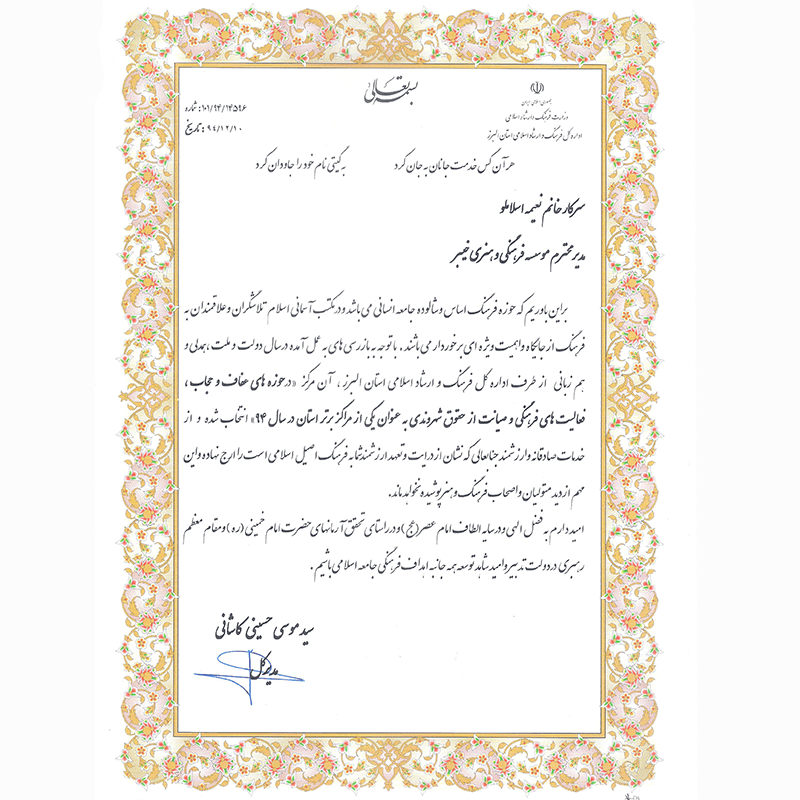 بسمه تعالی
جمهوری اسلامی ایران
وزارت فرهنگ و ارشاد اسلامی
اداره کل فرهنگ و ارشاد اسلامی استان البرز
شماره: ۱۰۱/۹۴/۱۴۵۹۶
تاریخ: ۹۴/۱۲/۱۰
هر آن کس خدمت جانان به جان کرد به گیتی نام خود را جاودان کرد
سرکار خانم نعیمه اسلاملو
مدیر محترم موسسه فرهنگی و هنری خیبر
براین باوریم که حوزه فرهنگ اساس و شالوده جامعه انسانی می باشد و در مکتب آسمانی اسلام تلاشگران و علاقمندان به
فرهنگ از جایگاه و اهمیت ویژه ای برخوردار می باشند. با توجه به بازرسی های به عمل آمده در سال دولت و ملت، همدلی و
هم زبانی از طرف اداره کل فرهنگ و ارشاد اسلامی استان البرز، آن مرکز «در حوزه های عفاف و حجاب،
فعالیت های فرهنگی و صیانت از حقوق شهروندی به عنوان یکی از مراکز برتر استان در سال ۹۴» انتخاب شده و از
خدمات صادقانه و ارزشمند جنابعالی که نشان از درایت و تعهد ارزشمند شما به فرهنگ اصیل اسلامی است را ارج نهاده و این
مهم از دید متولیان و اصحاب فرهنگ و هنر پوشیده نخواهد ماند.
امید دارم به فضل الهی و در سایه الطاف امام عصر (عج) و در راستای تحقق آرمانهای حضرت امام خمینی (ره) و مقام معظم
رهبری در دولت تدبیر و امید شاهد توسعه همه جانبه اهداف فرهنگی جامعه اسلامی باشیم.
سید موسی حسینی کاشانی
مدیرکل